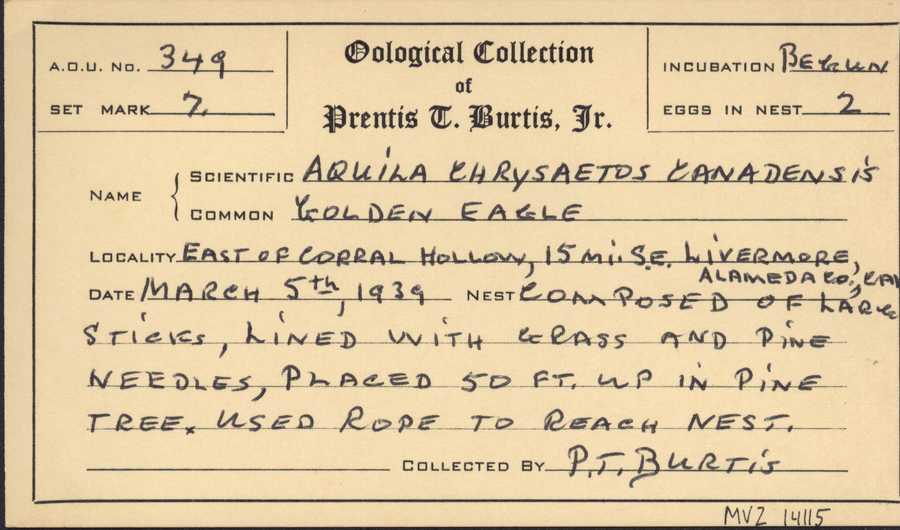 A.O.U. No. 349
Oological Collection
of
Prentis T. Burtis, Jr.
INCUBATION BEGUN
SET MARK 7.
EGGS IN NEST 2
NAME { SCIENTIFIC AQUILA CHRYSAETOS CANADENSIS
COMMON GOLDEN EAGLE
LOCALITY EAST OF CORRAL HOLLOW, 15 Mi. S.E. LIVERMORE,
ALAMEDA CO., CAL
DATE MARCH 5th, 1939 NEST COMPOSED OF LARG
STICKS, LINED WITH GRASS AND PINE
NEEDLES, PLACED 50 FT. UP IN PINE
TREE. USED ROPE TO REACH NEST.
COLLECTED BY P.T. BURTIS
MVZ 14115